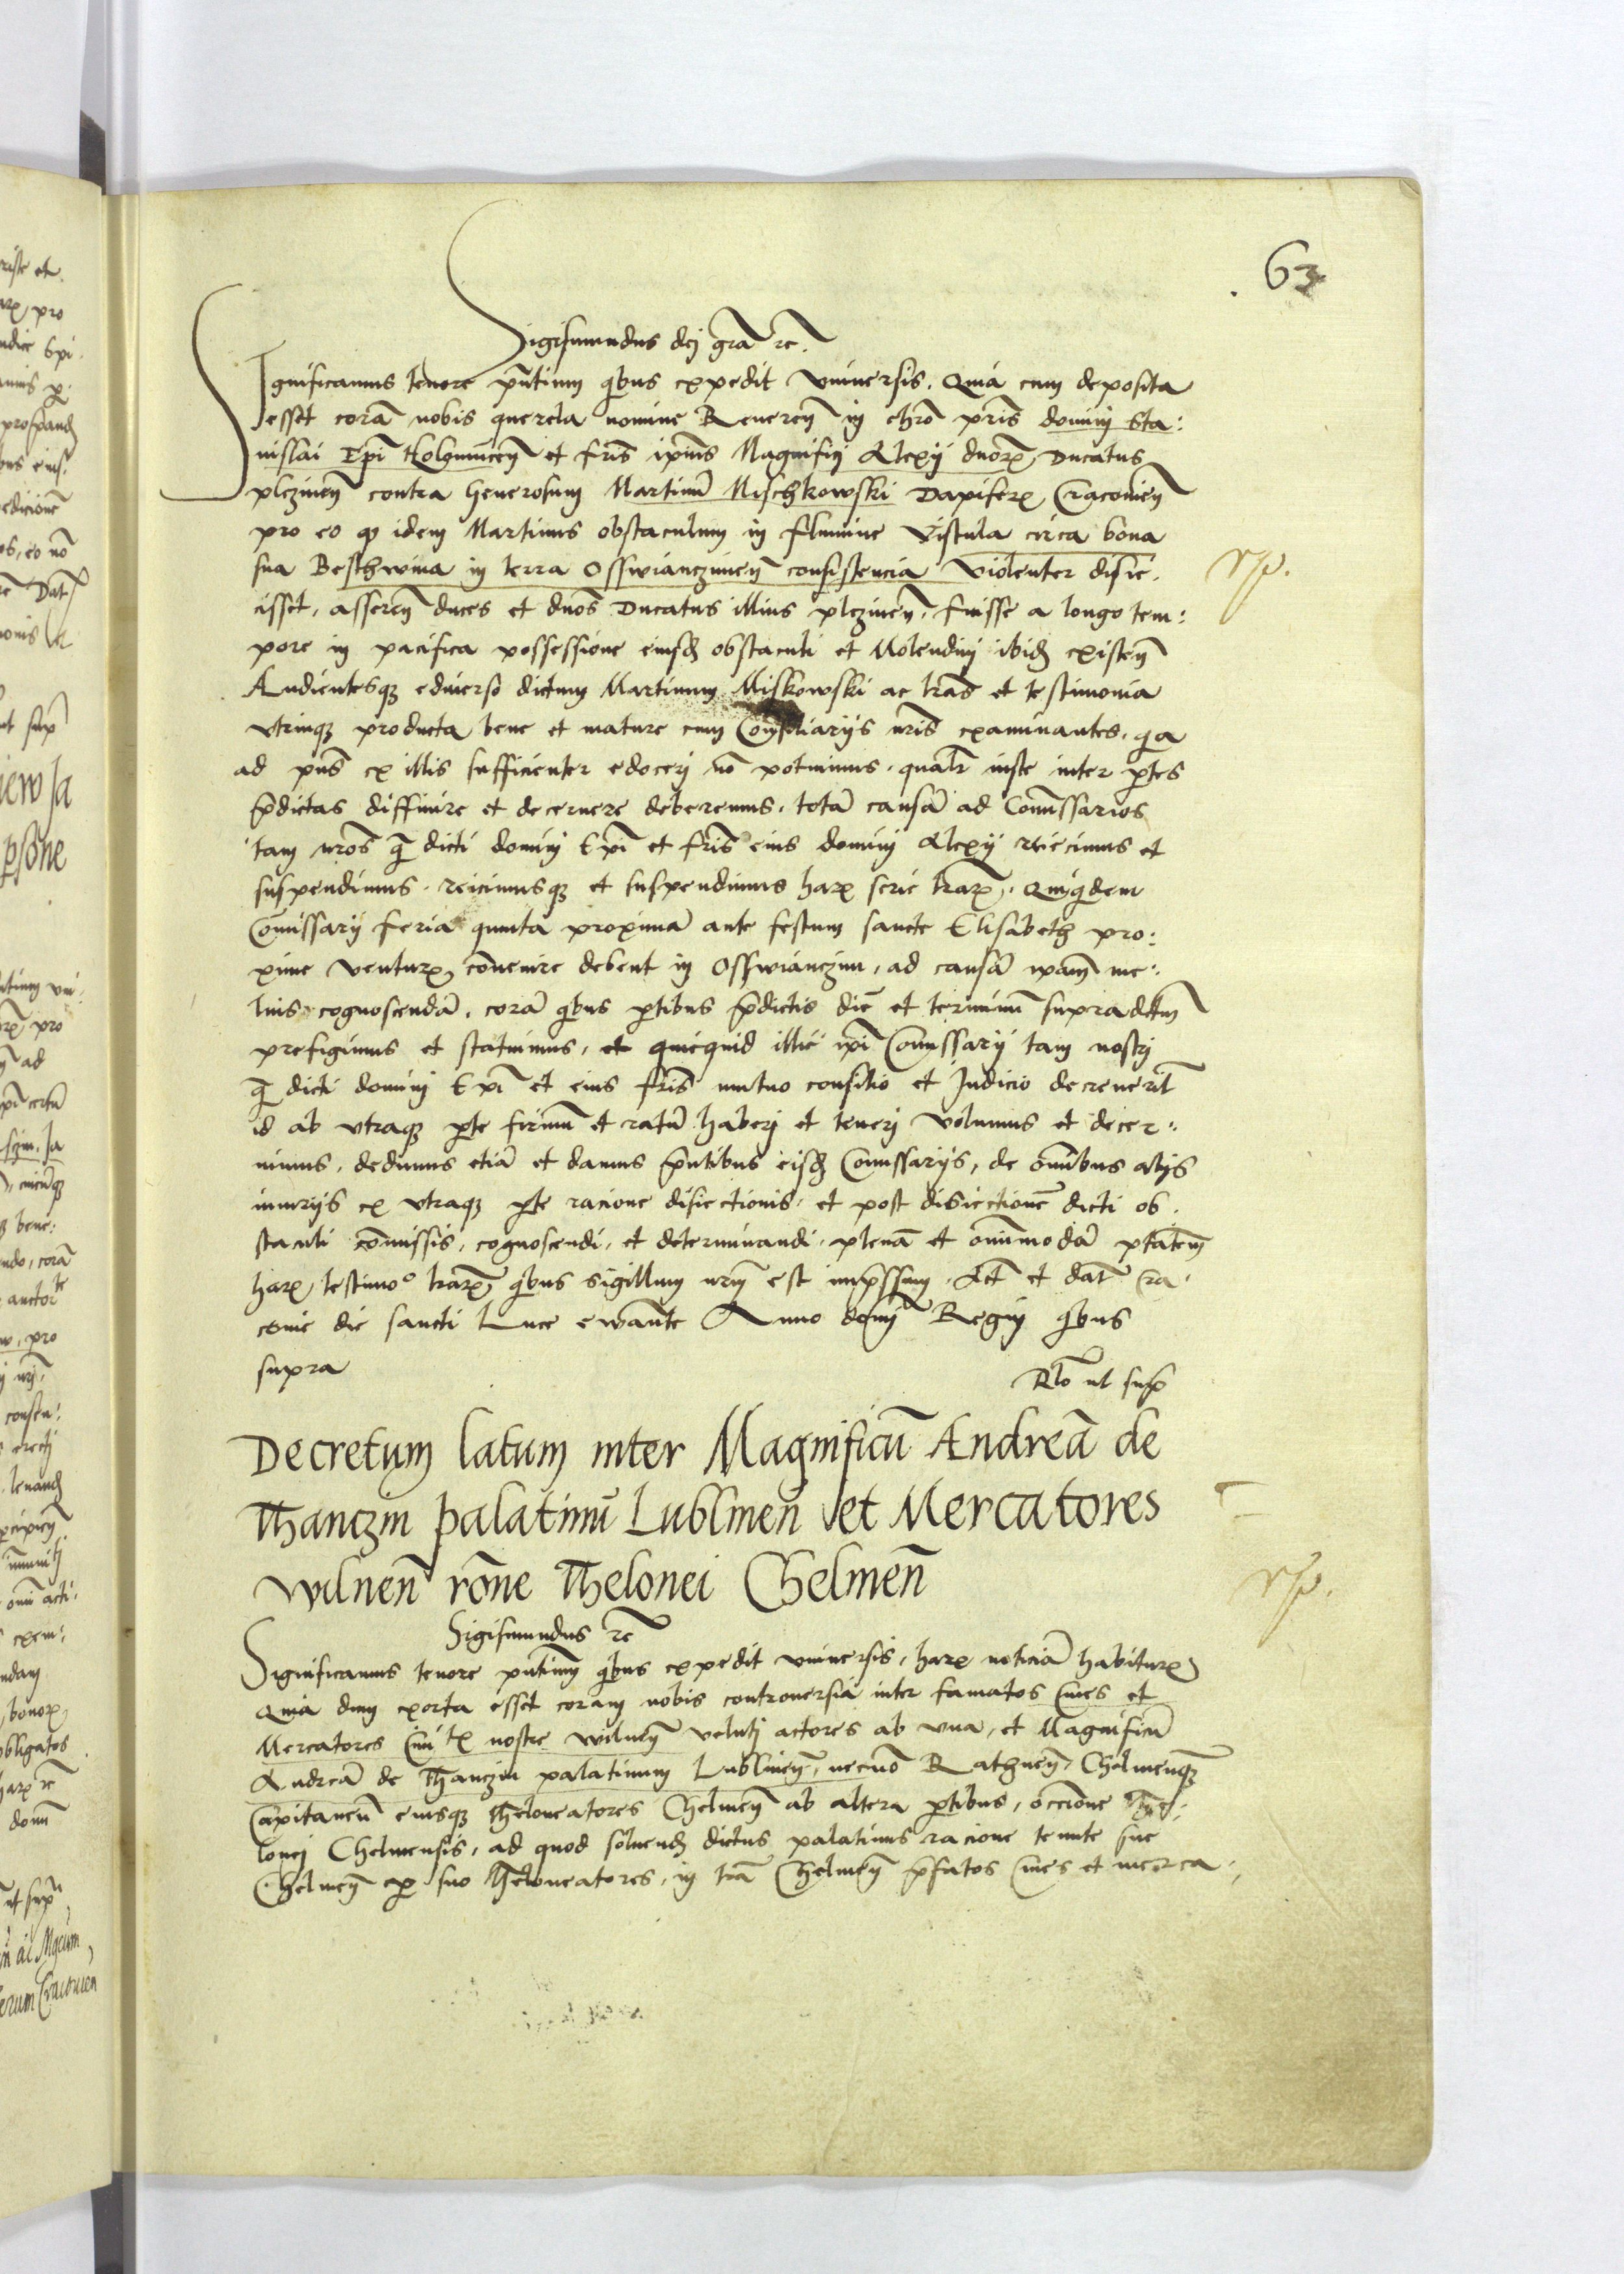 63
Sigismundus dej grã rc̃.
Significamus tenore pñtium qͥbus expedit Vniuersis. Quia cum deposita
esset corã nobis querela nomine Reuereñ in chrõ pris̃ dominj Sta:
nislai Epi̅ Holomuceñ et fris̃ ipius̃ Magnificj Alexij duorꝝ Ducatus
plczineñ contra Generosum Martinũ Mischkowski Dapiferꝝ Cracovieñ
pro eo ꝙ idem Martinus obstaculum in flumine Vistula circa bona
sua Besthwina in terra Osswianczimeñ consistencia Violenter disie.
cisset, assereñ duces et duos̃ Ducatus illius plczineñ. fuisse a longo tem:
pore in pacifica possessione eiusd̃ obstaculi et Molendinj ibid̃ existeñ
Audientesqꝫ eduierso dictum Martinum Miskowski ac lrãs et testimonia
vtrinqꝫ producta bene et mature cum Consiliarijs nris̃ examinantes. qͥa
ad pñs ex illis sufficienter edocerj nõ potuimus. qualr̃ iuste inter ꝑtes
p̃dictas diffinire et decernere deberemus. totã causã ad Com̃issarios
tam nros̃ qͣ dicti dominj Epi̅ et fris̃ eius dominj Alexij reiecimus et
suspendimus. reicimusqꝫ et suspendimus harꝝ serie lrarꝝ. Quiqͥdem
Com̃issarij feria quinta proxima ante festum sancte Elisabeth pro:
xime Venturꝝ conuenire debent in Osswianczim, ad causã ipam̃ me:
lius cognoscendã. corã qͥbus ꝑtibus p̃dictis diẽ et terminũ supradc̃tum
prefigimus et statuimus, et quicquid illic ipi̅ Com̃issarij tam nostrj
qͣ dicti dominj Epi̅ et eius fris̃ mutuo consilio et Iudicio decreuerit̃
id ab vtraqꝫ ꝑte firmũ et ratũ haberj et tenerj Volumus et decer:
nimus. dedimus etiã et damus p̃ntibus eisd̃ Com̃issarijs, de om̃ibus alijs
iniurijs ex vtraqꝫ ꝑte racione disiectionis. et post disiectionẽ dicti ob.
staculi com̃issis, cognoscendi, et determinandi. plenã et om̃imodã ptatem̃
harꝝ testimoᵒ lrarꝝ qͥbus sigillum nrm̃ est imp̃ssum. Act̃ et dat̃ Cra.
couie die sancti Luce ewañte Anno domj̃ Regnj qͥbus
supra
Rlõ ut sup̃
Decretum latum inter Magnificũ Andreã de
Thanczin palatinũ Lublineñ et Mercatores
Wilneñ roñe Thelonei Chelmeñ
Sigismundus rc̃
Significamus tenore pñtium qͥbus expedit vniuersis, harꝝ noticiã habiturꝝ
Quia dum exorta esset coram nobis controuersia inter famatos Ciues et
Mercatores Ciuitꝭ nostre Wilneñ velutj actores ab vna, et Magnificũ
Andreã de Thanczin palatinum Lublineñ, necnõ Rathneñ, Chelmenqꝫ
Capitaneũ eiusqꝫ Theloneatores Chelmeñ ab altera ꝑtibus, occione The:
lonej Chelmensis, ad quod soluend̃ dictus palatinus racione tenute sue
Chelmeñ ꝑ suo Theloneatores, in trã Chelmeñ p̃fatos Ciues et merca: